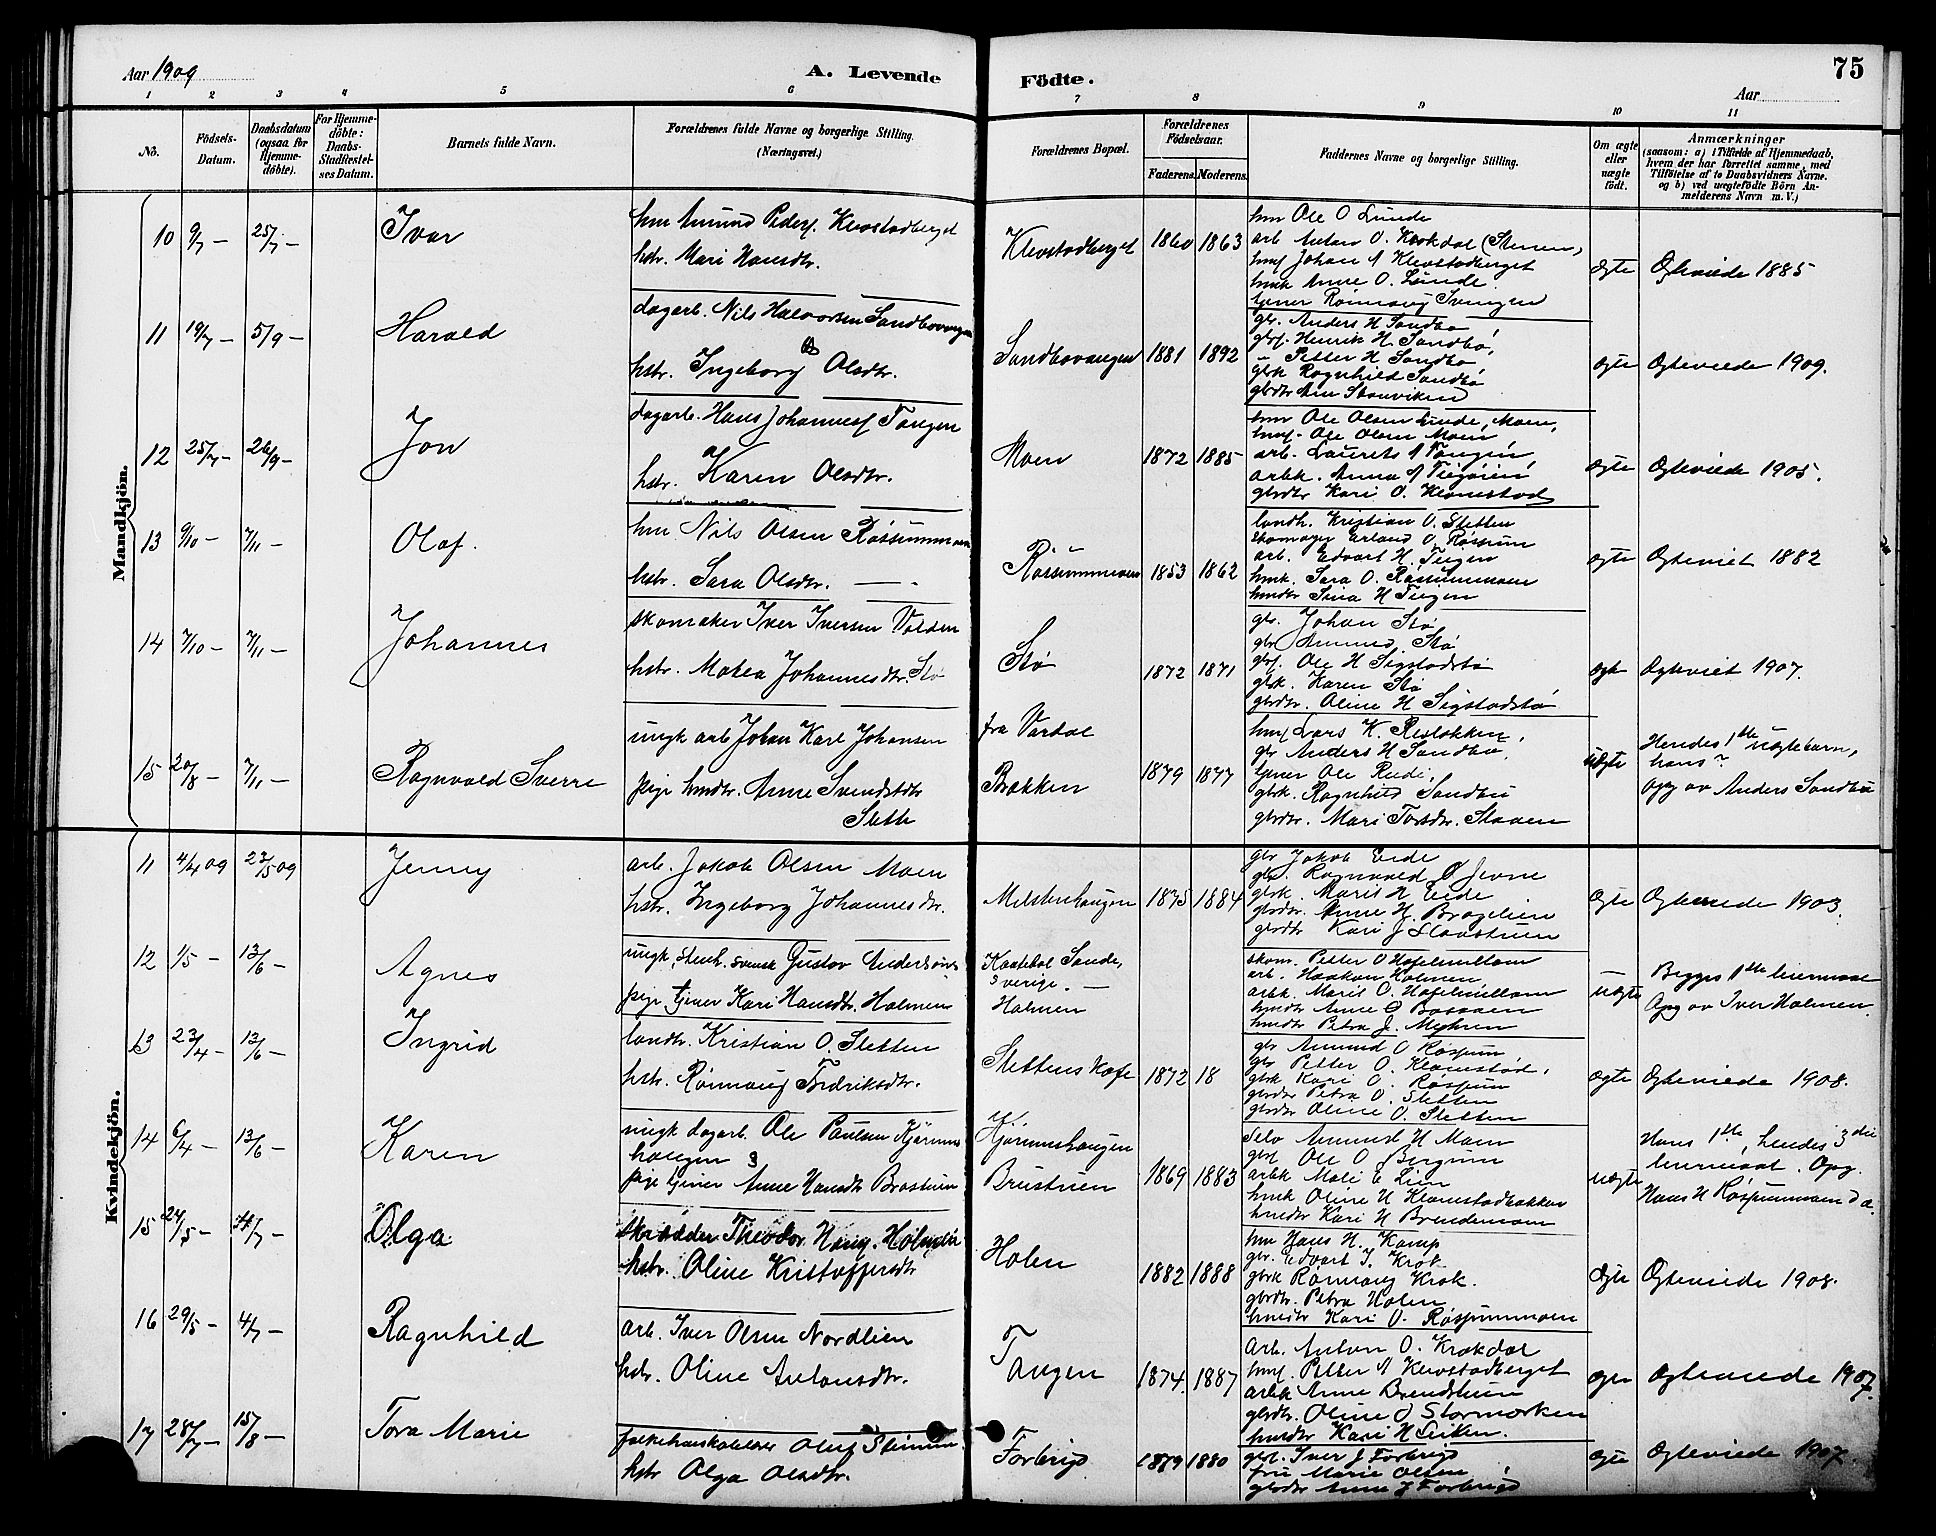 Aar 1909
A. Levende
Födte.
75
Aar
1 2 3 4 5 6 7 8 9 10 11
No.
Födsels-Datum.
Daabsdatum (ogsaa for Hjemmedøbte).
For Hjemmedøbte: Daabs-Stadfæstelses Datum.
Barnets fulde Navn.
Forældrenes fulde Navne og borgerlige Stilling. (Næringsvei.)
Forældrenes Bopæl.
Forældrenes Fødselsaar.
Faderens. Moderens.
Faddernes Navne og borgerlige Stilling.
Om ægte eller uægte født.
Anmærkninger (saasom: a) i Tilfælde af Hjemmedaab, hvem der har forrettet samme, med Tilføielse af to Daabsvidners Navne. og b) ved uægtefødte Börn Anmelderens Navn m. V.)
Mandkjön.
10 9/7 — 25/7 — Ivar
hmr Amund Peders. Klevstadberget
hstr. Mari Hansdtr.
Klevstadberget 1860 1863
hmr Ole O Lunde
arb Anton O. Krokdal (Stenen)
hmf Johan A Klevstadberget
hmk Anne O. Lunde
tjener Rønnaug Svingen
ægte Egteviede 1885
11 19/7 — 5/9 — Harald
dagarb. Nils Halvorsen Sandbovangen
hstr. Ingeborg Olsdtr.
Sandbovangen 1881 1892
gbr. Anders H Sandbø
gbrf. Henrik H. Sandbø,
" Petter H Sandbø
gbk Ragnhild Sandbø
gbrdtr Ane Stenviken
ægte Egteviede 1909.
12 25/7 — 26/9 — Jon
dagarb. Hans Johannesf Tangen
hstr. Karen Olsdtr.
Moen 1872 1885
hmr Ole Olsen Lunde, Moen,
hmf. Ole Olsen Moen
arb. Laurits A Tangen
arbk. Anna A
gbrdtr Kari O. Klomstad
ægte Egteviede 1905.
13 9/10 — 7/11 — Olaf.
hmr Nils Olsen Røssummoen
hstr. Sara Olsdtr. — " —
Røssummoen 1853 1862
landh. Kristian O. Sletten
skomager Erland O. Røssum
arb. Edvart H. Tingen
hmk. Sara O. Røssummoen
hmdtr Sina H Tingen
ægte Egteviet 1882
14 7/10 — 7/11 — Johannes
skomaker Iver Iversen Volden
hstr. Matea Johannesdtr. Stø
Stø 1872 1871
gbr. Johan Stø
gbr Ammund Stø
gbf. Ole H Sigstadstø
gbk. Karen Stø
gbrdtr. Oline H Sigstadstø
ægte Egteviet 1907.
15 20/8 — 7/11 — Ragnvald Sverre
ungk arb Johan Karl Johansen
pige hmdtr. Anne Svendsdtr
Sletti
fra Vardal
Bakken 1879 1877
hmf Lars K. Røsløkken,
gbr Anders H Sandbø.
tjener Ole Rudi,
gbk. Ragnhild Sandbø
gbrdtr. Mari Torsdtr. Staaen
uægte
Hendes 1ste uægtebarn,
hans?
Opg av Anders Sandbø
Kvindekjön.
11 4/4 09 23/5 09 Jenny
arb. Jakob Olsen Moen
hstr. Ingeborg Johannesdtr.
Milstenhaugen 1875 1884
gbr Jakob Eide
gbr. Ragnvald O Jevne
gbrk. Marit H Eide
gbrdtr. Anne H. Bragelien
gbrdtr Kari J Haastuen
ægte Egteviede 1903.
12 1/5 — 13/6 — Agnes
ungk, stenh. svensk Gustav Anderssøns
pige tjener Kari Hansdtr. Holmen
Sande,
Sverige. —
Holmen
skom. Petter O Høfelmillom
arb. Haakon Holmen
arbk. Marit O. Høfelmillom
hmdtr Anne O Baasaen
hmdtr Petra J. Myhren
uægte
Begges 1ste leiermaal
Opg av Iver Holmen.
13 23/4 — 13/6 — Ingrid
landh. Kristian O. Sletten
hstr. Rønnaug Fredriksdtr.
Slettens Kafe 1872 18
gbr Ammund O Røssum
gbr Petter O. Klomstad,
gbrk Kari O. Røssum
gbrdtr Petra O. Sletten
gbrdtr Oline O. Sletten
ægte Egteviede 1908.
14 6/4 — 13/6 — Karen
ungk dagarb. Ole Paulsen Kjørmes
haugen
pige tjener Anne Hansdtr Brostuen
Kjørmeshaugen
Brustuen 1869 1883
selv Ammund H Moen
gbf Ole O Bergum
arbk Mali E Lien
hmk Oline H Klomstadbakken
hmdtr Kari H Brendemoen
uægte
Hans 1ste, hendes 3die
leiermaal. Opg.
Hans H Røssummoen d.æ.
15 24/5 — 4/7 — Olga
skrædder Theodor Hans. Holmen
hstr. Oline Kristoffersdtr
Holen 1882 1888
hmr Hans H. Kamp
gbr. Edvart J. Krok
gbrk Rønnaug Krok.
gbrdtr. Petra Holen
hmdtr Kari O. Røssummoen
ægte Egteviede 1908.
16 29/5 — 4/7 — Ragnhild
arb. Iver Olsen Nordlien
hstr. Oline Antonsdtr.
Tangen 1874. 1887
arb. Anton O. Krokdal
hmf. Petter A Klevstadberget
arbk Anne Brendstuen
gbrdtr. Oline O Stormorken
hmdtr Kari H Leiken.
ægte Egteviede 1907.
17 28/7 — 15/8 — Tora Marie
Olaf Steinen
hstr Olga Olsdtr.
Forbrigd 1879 1880
gbf. Iver J Forbrigd
fru Marie Olsen
gbrdtr Anne J Forbrigd
ægte Egteviede 1907.